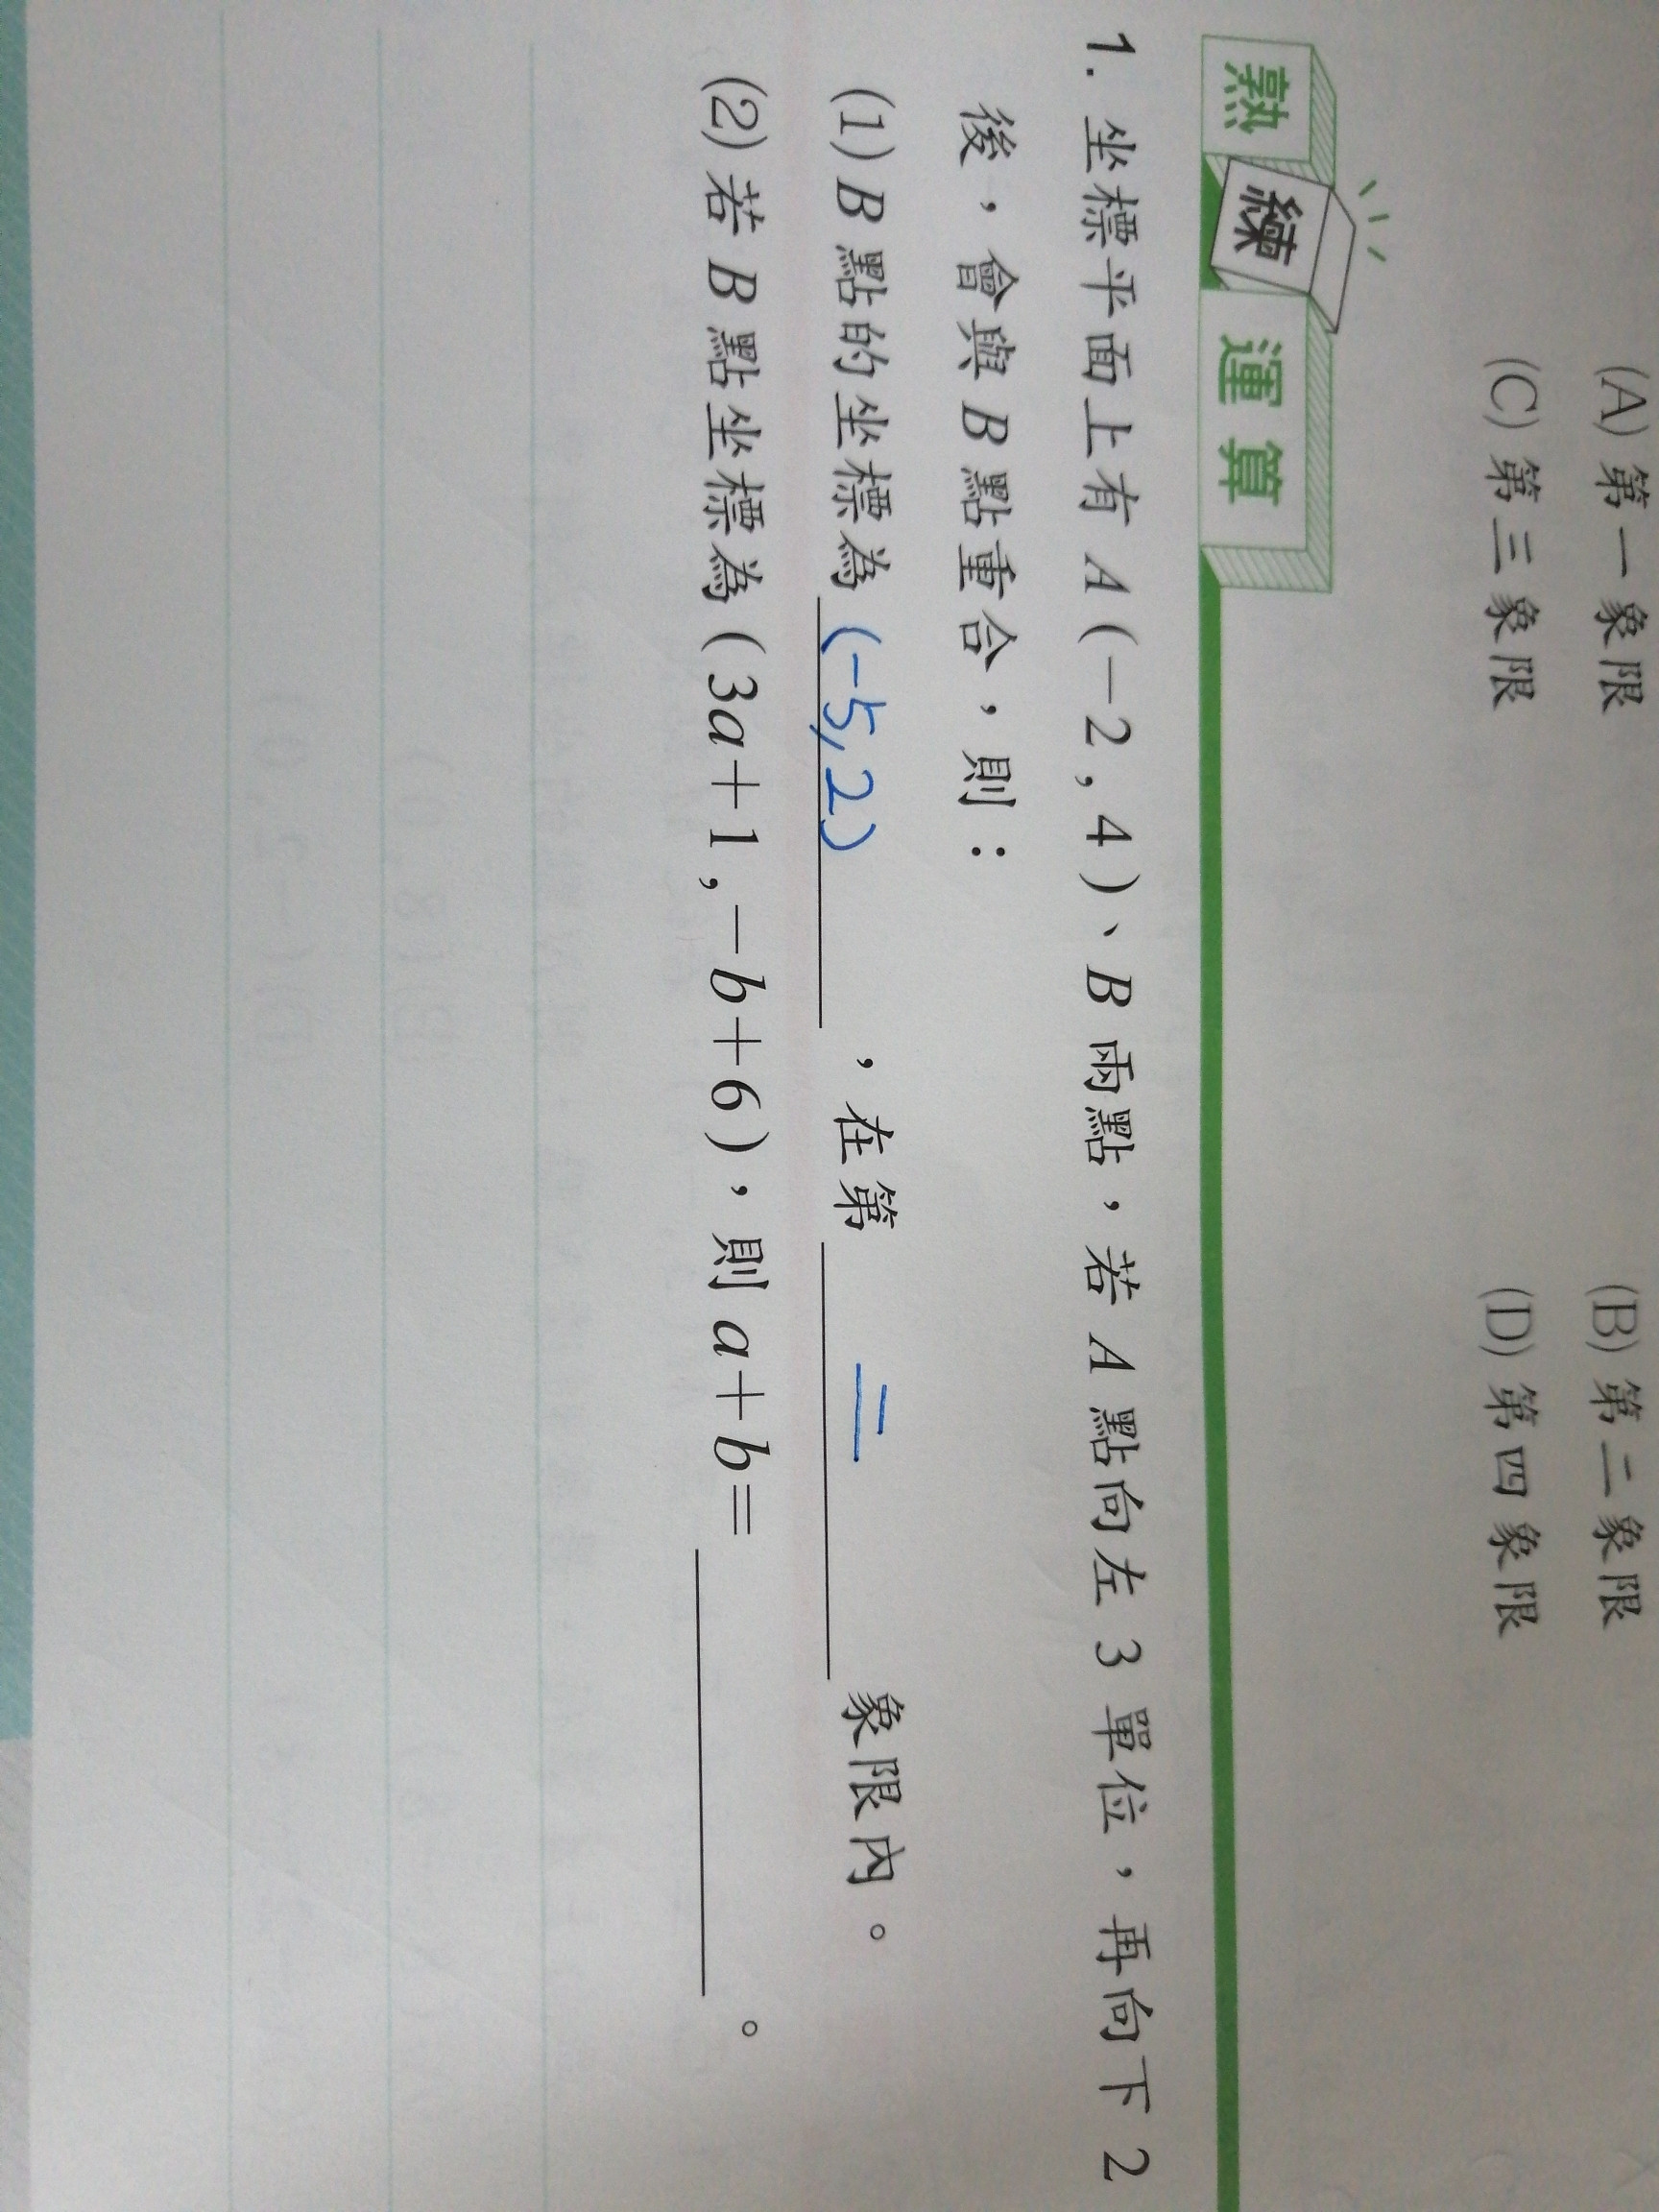 (A) 第一象限 (B) 第二象限
(C) 第三象限 (D) 第四象限
熟練運算
1. 坐標平面上有 A(-2,4)、B 兩點，若 A 點向左 3 單位，再向下 2
後，會與 B 點重合，則：
(1) B 點的坐標為 (-5,2) ，在第 二 象限內。
(2) 若 B 點坐標為 (3a+1,-b+6)，則 a+b= 。